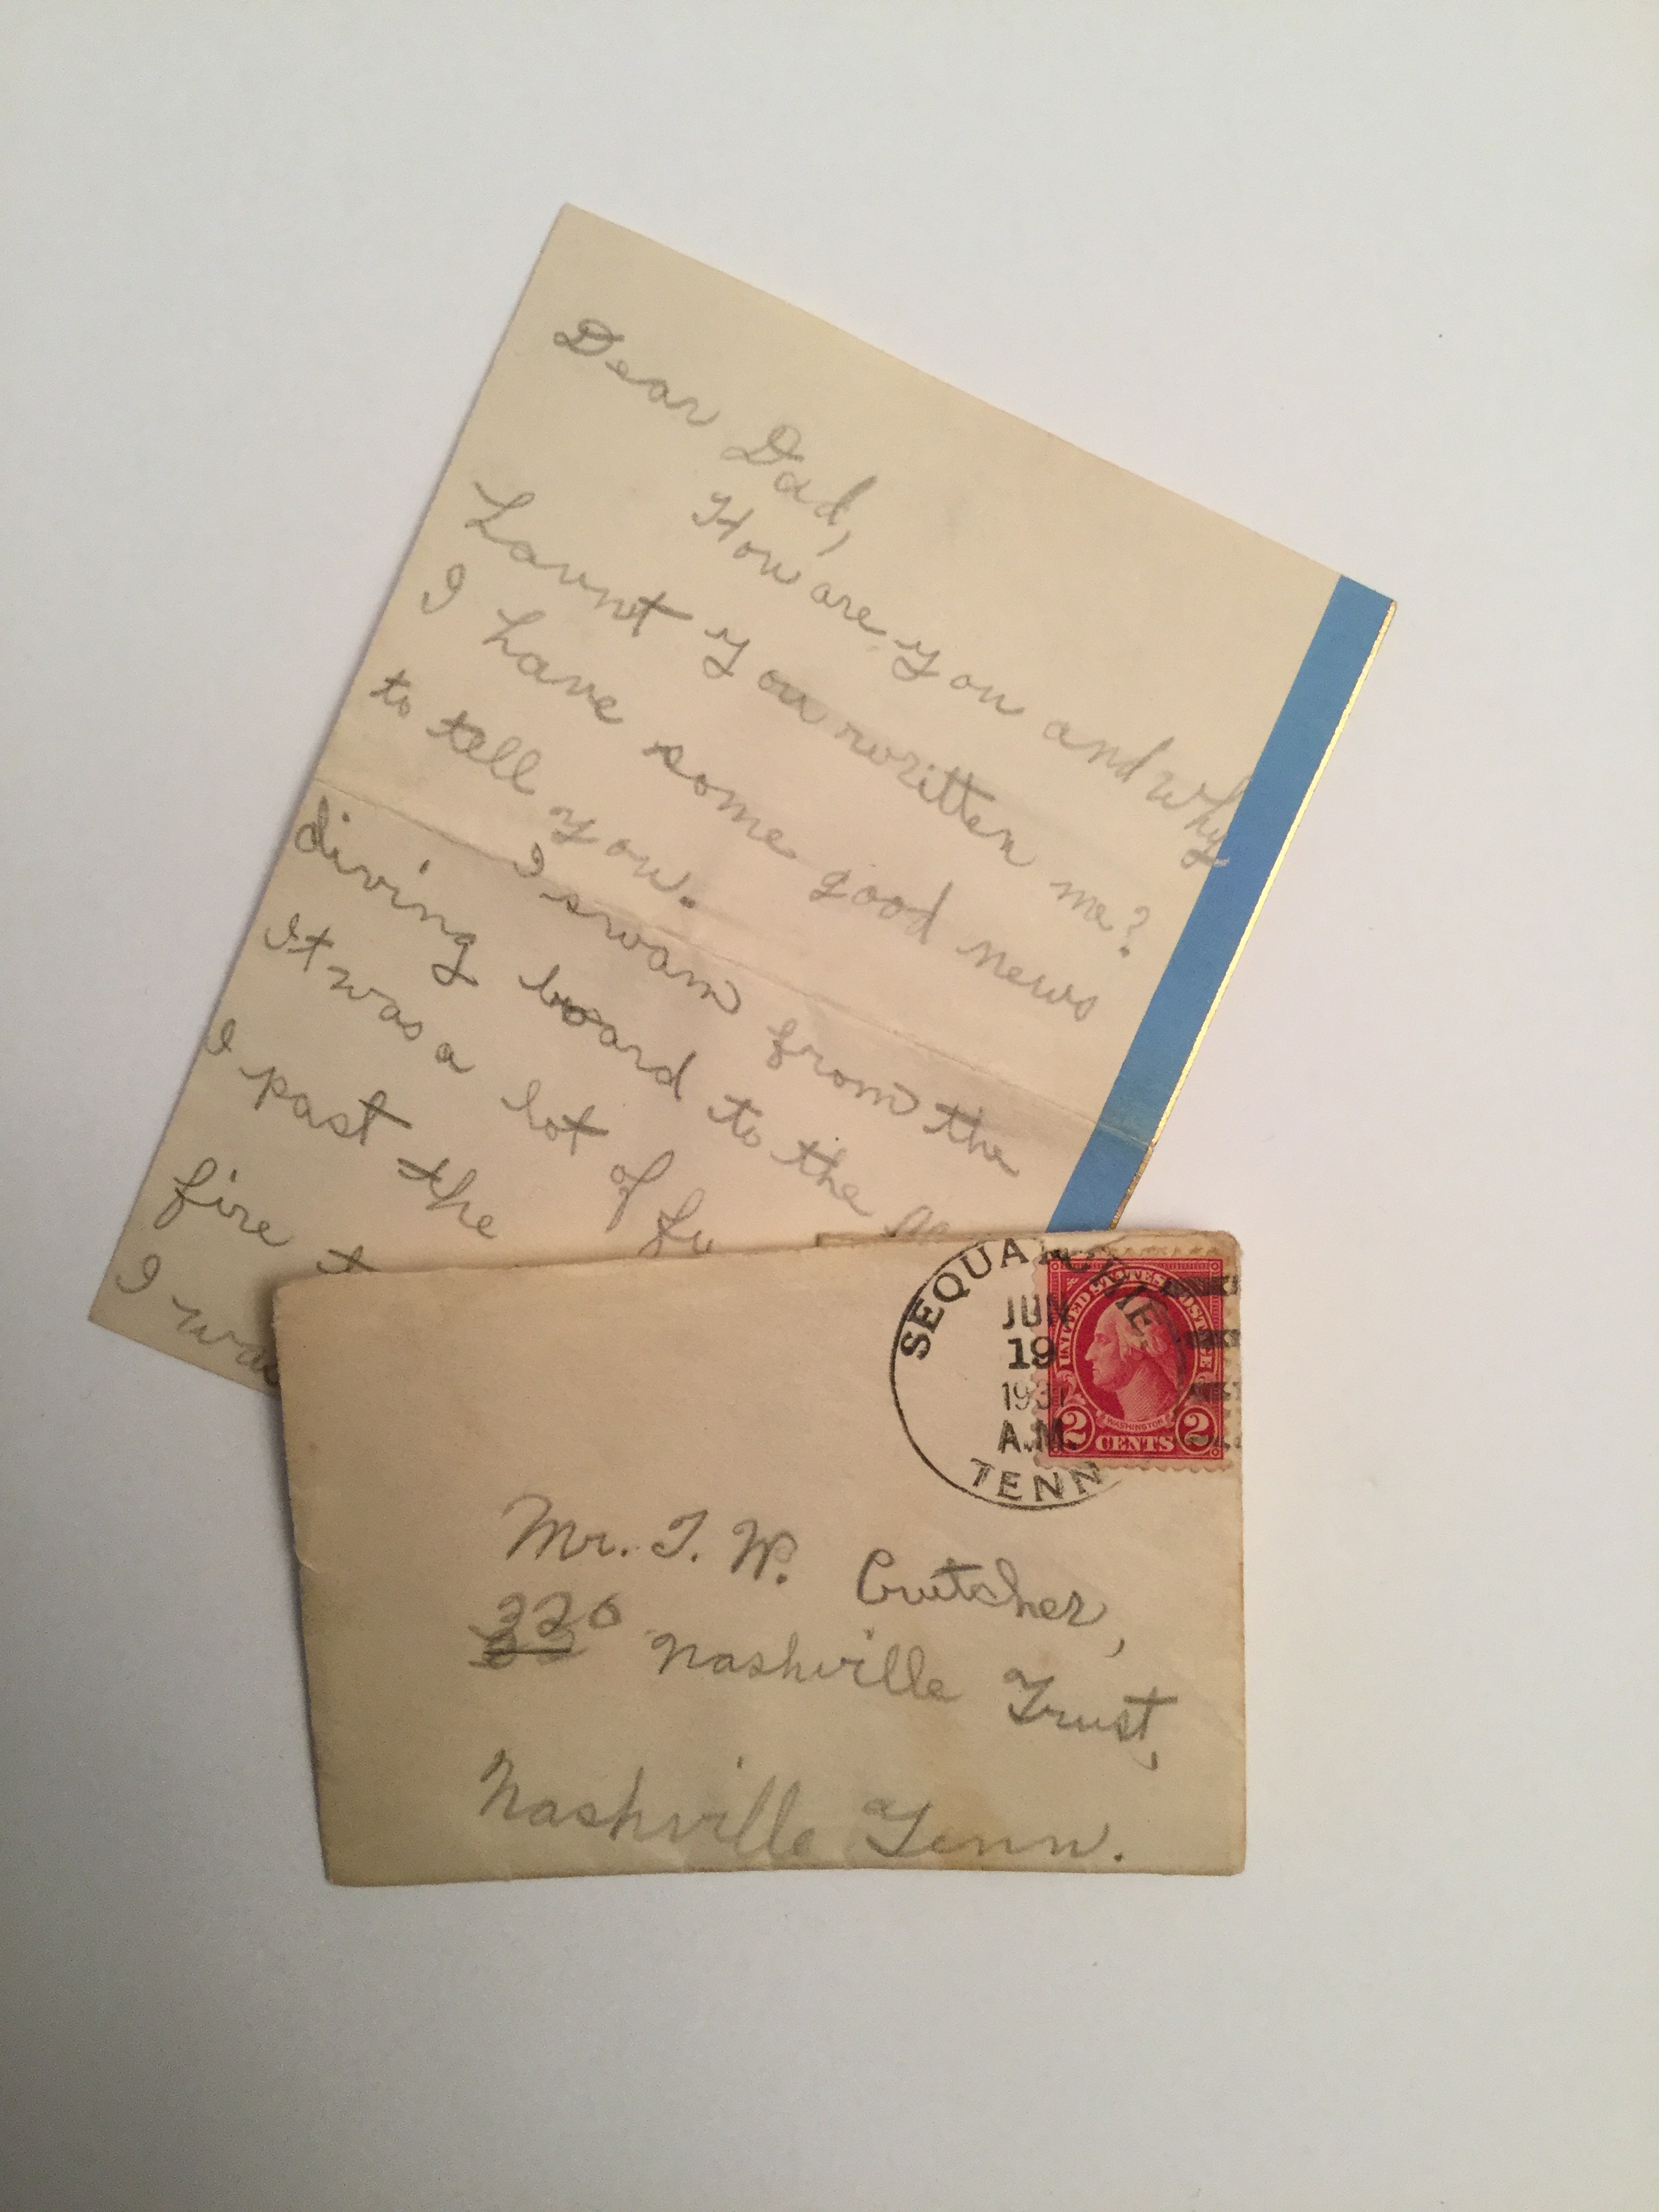 Dear Dad,
How are you and why
havnt you written me?
I have some good news
to tell you.
I swam from the
diving board to the
It was a lot of fu
I past the
fire
I wa
SEQUATCHIE
JUN
19
1931
A.M.
TENN
UNITED STATES POSTAGE
WASHINGTON
2 CENTS 2
Mr. T. W. Crutcher,
220 Nashville Trust,
Nashville Tenn.